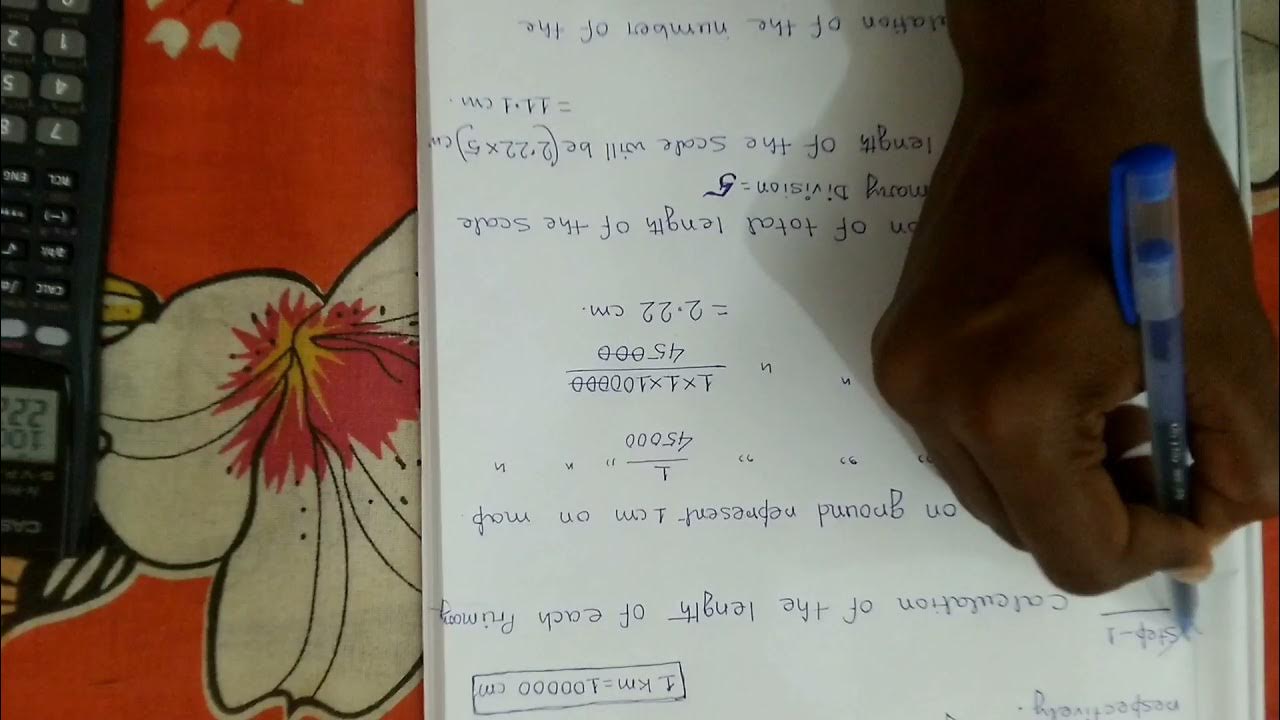 respectively.
1 km=100000 cm
Step-1
Calculation of the length of each Primary
on ground represent 1cm on map.
,, ,, ,, 1/45000 ,, " "
" " 1×1×100000/45000
= 2.22 cm.
on of total length of the scale
mary Division = 5
length of the scale will be (2.22×5) cm
= 11.1 cm.
lation of the number of the
CALC
ENG
RCL
7
8
4
5
1
2
0